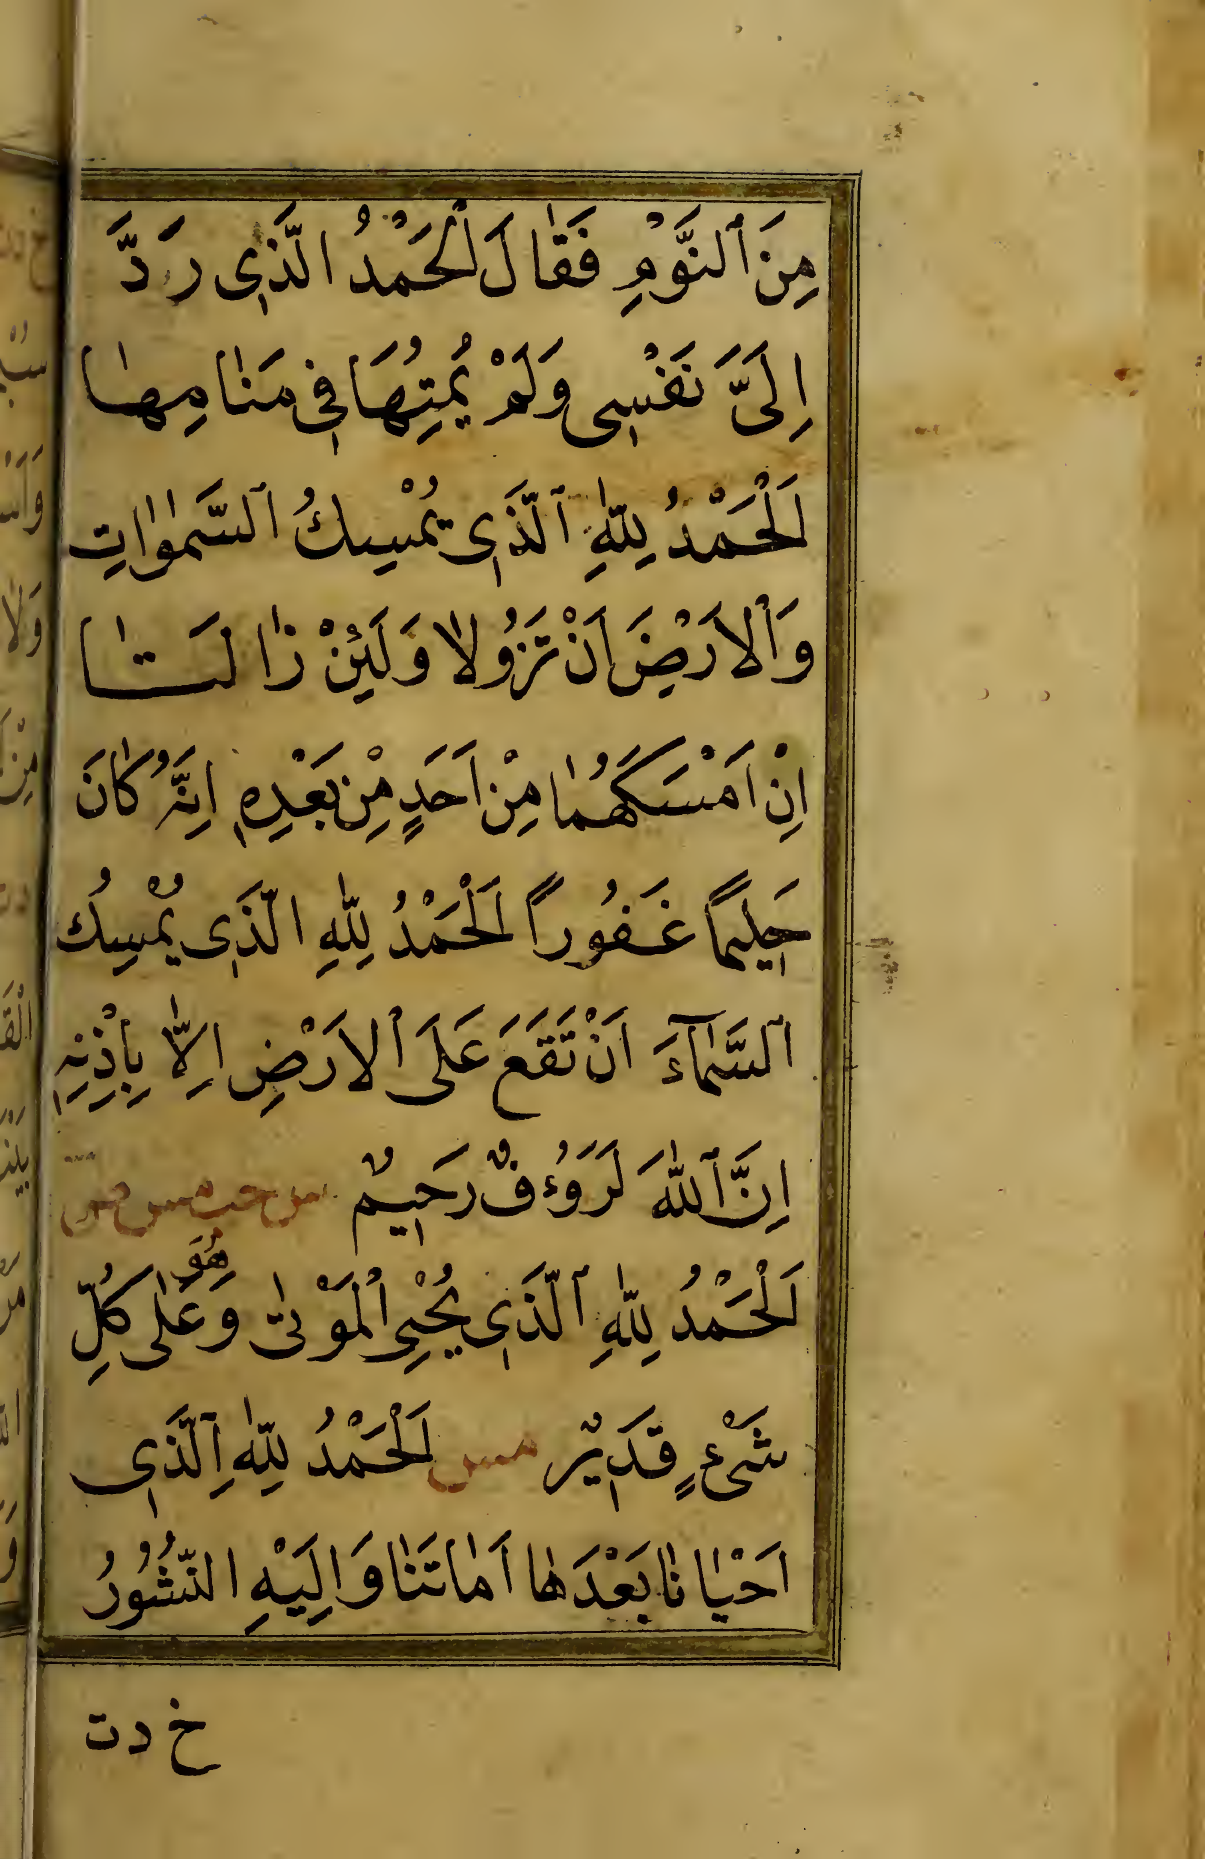 مِنَ ٱلنَّوْمِ فَقَالَ ٱلْحَمْدُ الَّذِى رَدَّ
اِلَىَّ نَفْسِى وَلَمْ يُمِتْهَا فِى مَنَامِهَا
اَلْحَمْدُ لِلّٰهِ ٱلَّذِى يُمْسِكُ ٱلسَّمٰوَاتِ
وَٱلاَرْضَ اَنْ تَزُولَا وَلَئِنْ زَالَتَا
اِنْ اَمْسَكَهُمَا مِنْ اَحَدٍ مِنْ بَعْدِهِ اِنَّهُ كَانَ
حَلِيمًا غَفُوراً اَلْحَمْدُ لِلّٰهِ الَّذِى يُمْسِكُ
ٱلسَّمَآءَ اَنْ تَقَعَ عَلَى ٱلاَرْضِ اِلَّا بِاِذْنِهِ
اِنَّ ٱللّٰهَ لَرَؤُفٌ رَحِيمٌ س حب مس
هُوَ
اَلْحَمْدُ لِلّٰهِ ٱلَّذِى يُحْيِى ٱلْمَوْتٰى وَعَلٰى كُلِّ
شَىْءٍ قَدِيرٌ مس اَلْحَمْدُ لِلّٰهِ ٱلَّذِى
اَحْيَانَا بَعْدَهَا اَمَاتَنَا وَاِلَيْهِ النُّشُورُ
خ د ت